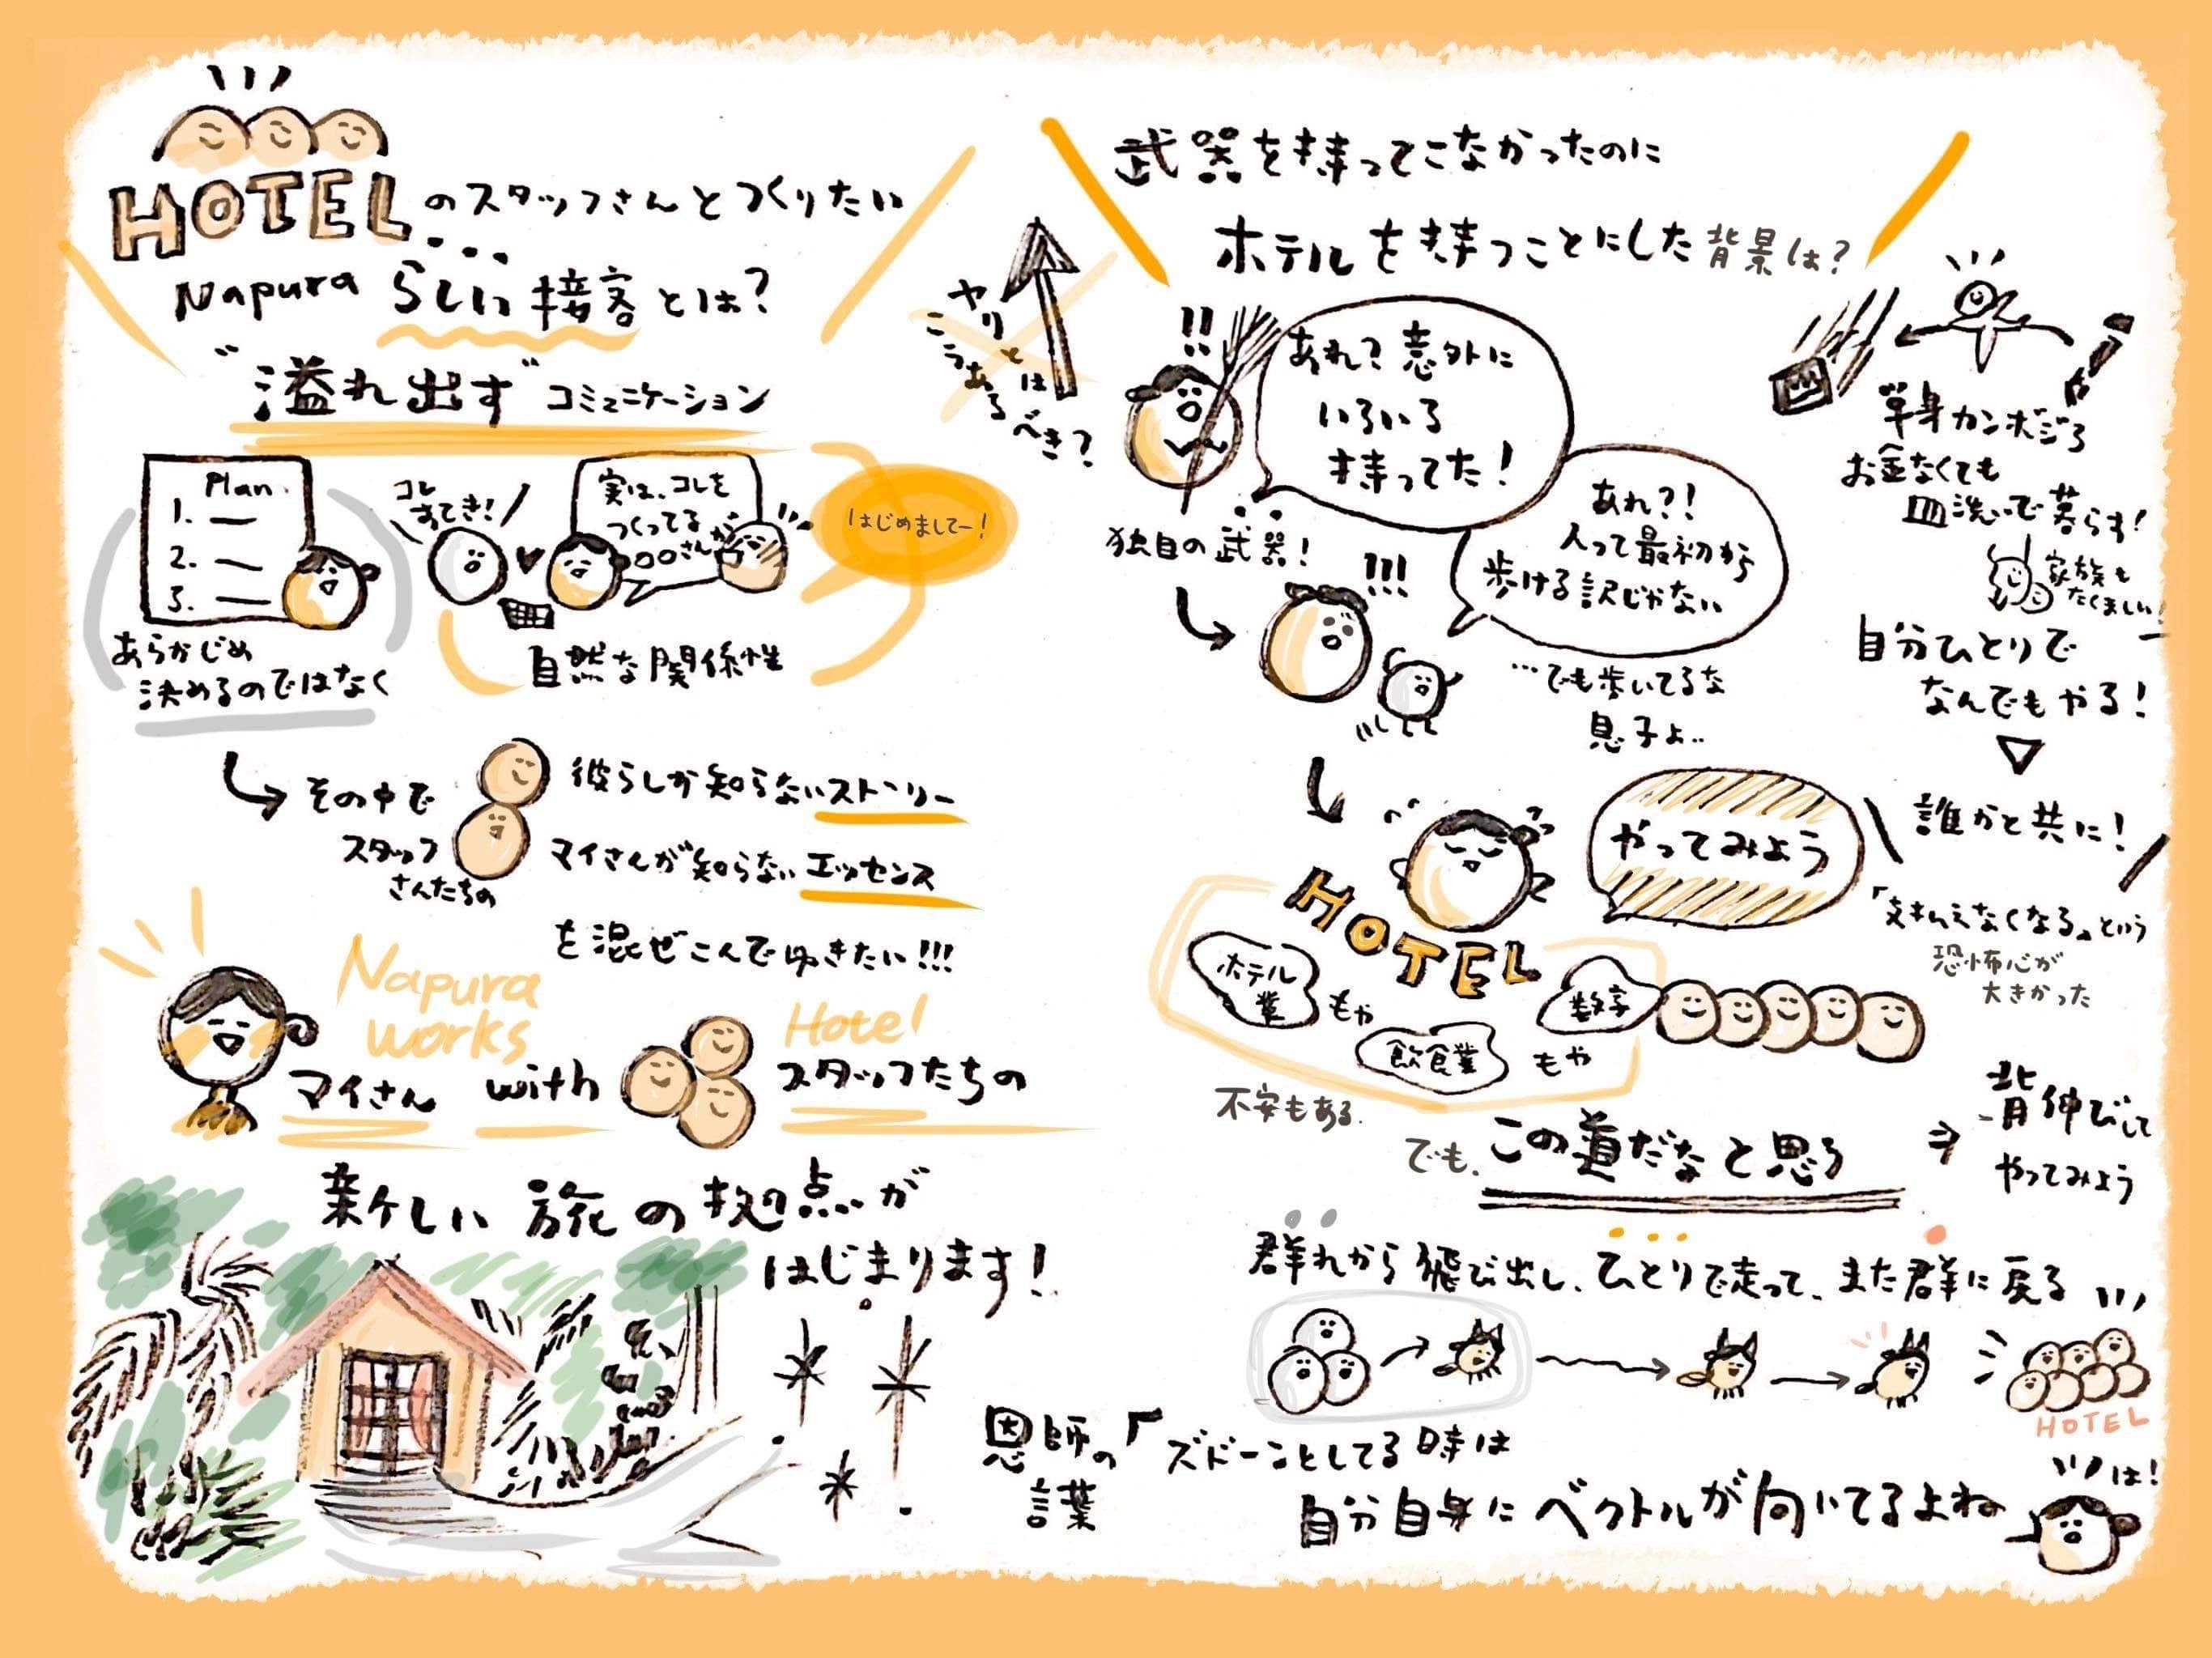 HOTELのスタッフさんとつくりたい
Napuraらしい接客とは?
"溢れ出す"コミュニケーション
Plan.
1.
2.
3.
あらかじめ
決めるのではなく
コレ
すてき!
実は、コレを
つくってる
〇〇さん
はじめましてー!
自然な関係性
その中で
スタッフ
さんたちの
彼らしか知らないストーリー
マイさんが知らないエッセンス
を混ぜこんでゆきたい!!!
Napura
works
Hotel
マイさん with スタッフたちの
新しい旅の拠点が
はじまります!
武器を持ってこなかったのに
ホテルを持つことにした背景は?
ヤリとは
こうあるべき?
!!
あれ?意外に
いろいろ
持ってた!
独自の武器!
!!!
あれ?!
人って最初から
歩ける訳じゃない
…でも歩いてるな
息子よ..
単身カンボジア
お金なくても
皿洗いで暮らす!
家族も
たくましい!
自分ひとりで
なんでもやる!
誰かと共に!
「支払えなくなる」という
恐怖心が
大きかった
背伸びして
やってみよう
やってみよう
HOTEL
ホテル
業
もや
飲食業
もや
数字
不安もある.
でも、この道だなと思う
群れから飛び出し、ひとりで走って、また群に戻る
HOTEL
恩師の
言葉
「ズドーンとしてる時は
自分自身にベクトルが向いてるよね
は!